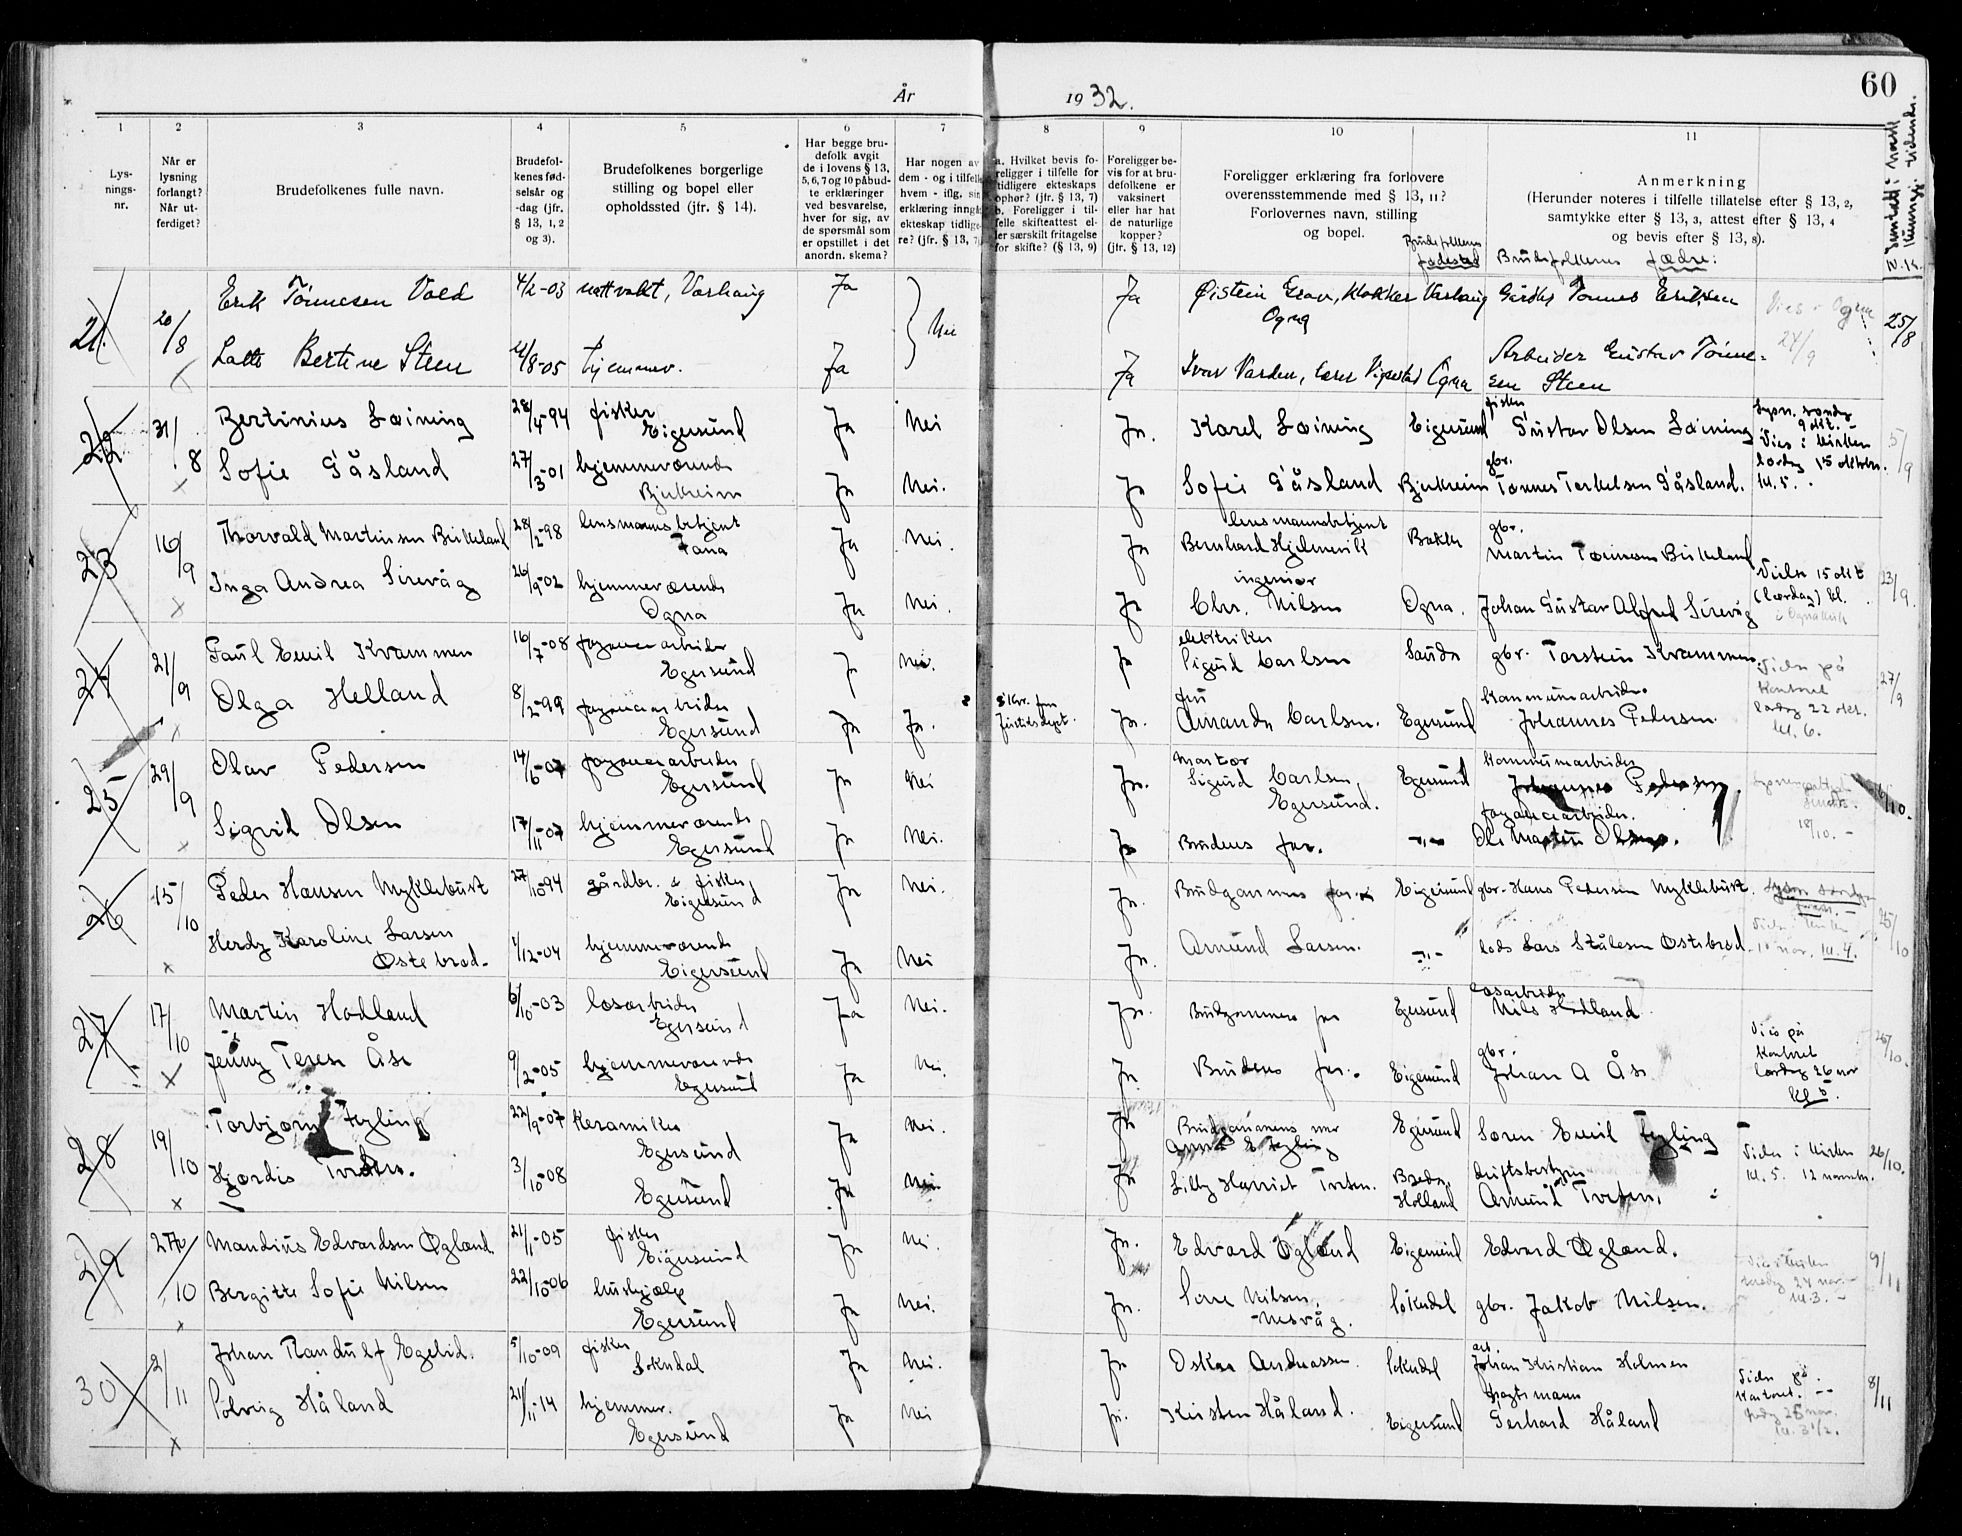 60
År 1932.
1 2 3 4 5 6 7 8 9 10 11
Lys-
nings-
nr.
Når er
lysning
forlangt?
Når ut-
ferdiget?
Brudefolkenes fulle navn.
Brudefol-
kenes fød-
selsår og
-dag (jfr.
§ 13, 1, 2
og 3).
Brudefolkenes borgerlige
stilling og bopel eller
opholdssted (jfr. § 14).
Har begge bru-
defolk avgit
de i lovens § 13,
5, 6, 7 og 10 påbud-
te erklæringer
ved besvarelse,
hver for sig, av
de spørsmål som
er opstillet i det
anordn. skema?
Har nogen av
dem - og i tilfelle
hvem - iflg. sin
erklæring inngåt
ekteskap tidlige-
re? (jfr. § 13, 7)
a. Hvilket bevis fo-
religger i tilfelle for
tidligere ekteskaps
ophør? (jfr. § 13, 7)
b. Foreligger i til-
felle skifteattest el-
ler særskilt fritagelse
for skifte? (§ 13, 9)
Foreligger be-
vis for at bru-
defolkene er
vaksinert
eller har hat
de naturlige
kopper?
(jfr. § 13, 12)
Foreligger erklæring fra forlovere
overensstemmende med § 13, 11?
Forlovernes navn, stilling
og bopel.
Brudefolkenes
fødested
Anmerkning
(Herunder noteres i tilfelle tillatelse efter § 13, 2,
samtykke efter § 13, 3, attest efter § 13, 4
og bevis efter § 13, 8).
Brudefolkenes fædre:
21. 20/8 Erik Tønnesen Vold 4/2-03 nattvakt, Varhaug Ja Nei Ja Øistein Grav, klokker Varhaug Gårdbr Tønnes Eriksen Vies i Ogna 25/8
Ogna 24/9
Bertine Steen /8-05 hjemmev. Ja Ja Ivar Varden, Ogna Arbeider Gustav Tønne-
sen Steen
22 31/8 Bertinius Løining 28/4-94 fisker Ja Nei Ja. Karel Løining Eigersund fisker Gustav Olsen Løining
Eigersund
Lysn. søndag
9 okt. -
Vies i kirken
lørdag 15 oktbr.
kl. 5.
5/9
Sofie Gåsland 27/3-01 hjemmeværende Ja Nei. Ja Sofie Gåsland Bjerkreim gbr. Tønnes Torkelsen Gåsland.
Bjerkreim
23 16/9 Thorvald Martinsen Birkeland 28/2-98 lensmannsbetjent Ja Nei. Ja lensmannsbetjent
Fana Bernhard Hjelmevik gbr. Martin Birkeland
Inga Andrea Sirevåg 26/9-02 hjemmeværende Ja Nei. Ja ingeniør
Ogna Chr. Nilsen Ogna. Johan Gustav Alfred Sirevåg
Vielse 15 okt
(lørdag) kl.
i Ogna kirke
23/9.
24 21/9 Paul Emil Kvammen 16/7-08 fayancearbeider Ja Nei. Ja elektriker
Egersund Sigurd Carlsen Sauda gbr. Torstein Kvammen.
Olga Helland 8/2-99 fayancearbeider Ja Ja. Skr. fra Ja. fru
Egersund Justisdept. Amanda Carlsen. Egersund Kommunearbeider.
Johannes Pedersen.
Vielse på
kontoret
lørdag 22 okt.
kl. 6.
27/9
25 29/9 Olav Pedersen 14/6-07 fayancearbeider Ja Nei Ja.
Egersund Sigurd Carlsen, Egersund Kommunearbeider
Egersund. Johannes Pedersen
Sigrid Olsen 17/11-07 hjemmeværende Ja Nei. Ja Brudens far. -"- fayancearbeider.
Egersund Ole Martin Olsen.
18/10. -
16/10.
26 15/10 Peder Hansen Myklebust 27/10-94 gårdbr. & fisker Ja Nei. Ja. Brudgommens far. Eigersund gbr. Hans Pedersen Myklebust.
Eigersund
Herdy Karoline Larsen /12-04 hjemmeværende Ja Nei Ja. Amund Larsen. -"- Lods Lars Ståleson Østebrød
Østebrød. Eigersund
nov. kl. 4.
25/10
27 17/10 Martin Hodland 6/10-03 løsarbeider Ja Nei. Ja. Brudgommens far Egersund løsarbeider
Egersund Nils Hodland.
Jenny Terese Åse 9/2-05 hjemmeværende Ja Nei. Ja Brudens far. Eigersund gbr.
Egersund Johan A Åse.
Vies på
kontoret
lørdag 26 nov
kl 5.
26/10.
28 19/10 Torbjørn Fugling 22/9-07 Keramiker Ja Nei. Ja Brudgommens mor Egersund Søren Emil Fygling
Egersund
Hjørdis Tveten. 3/10-08 Ja Nei. Ja Lilly Harriet Tveten. Breda, driftsbestyrer
Egersund Holland Amund Tveten.
Vielse i kirken
kl. 5. 12 novembr.
26/10.
29 27/10 Mandius Edvardsen Øgland 21/1-05 fisker Ja Nei. Ja. Edvard Øgland Eigersund Edvard Øgland.
Eigersund
Bergitte Sofie Nilsen 22/10-06 hushjelp Ja Nei. Ja. Nilsen, Sokndal gbr. Jakob Nilsen.
Egersund Nesvåg.
Vies i kirken
24 nov. -
kl. 3. -
9/11
30 2/11 Johan Randulf Egelid. 5/10-09 fisker Ja Nei. Ja Oskar Andreassen. Sokndal arb.
Sokndal Johan Kristian Holmen
Solveig Håland 21/11-14 hjemmev. Ja Nei Ja. Kirsten Håland. Eigersund fragtmann
Egersund Gerhard Håland
Vielse på
kontoret. --
fredag 25 nov.
kl. 3 1/2.
8/11